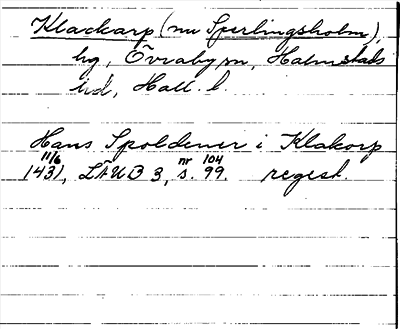 Klackarp (nu Sperlingsholm),
by, Övraby sn, Halmstads
hd, Hall. l.
Hans Spoldener i Klakorp
11/6 1431, LÄUB 3, nr 104 s. 99. regest.